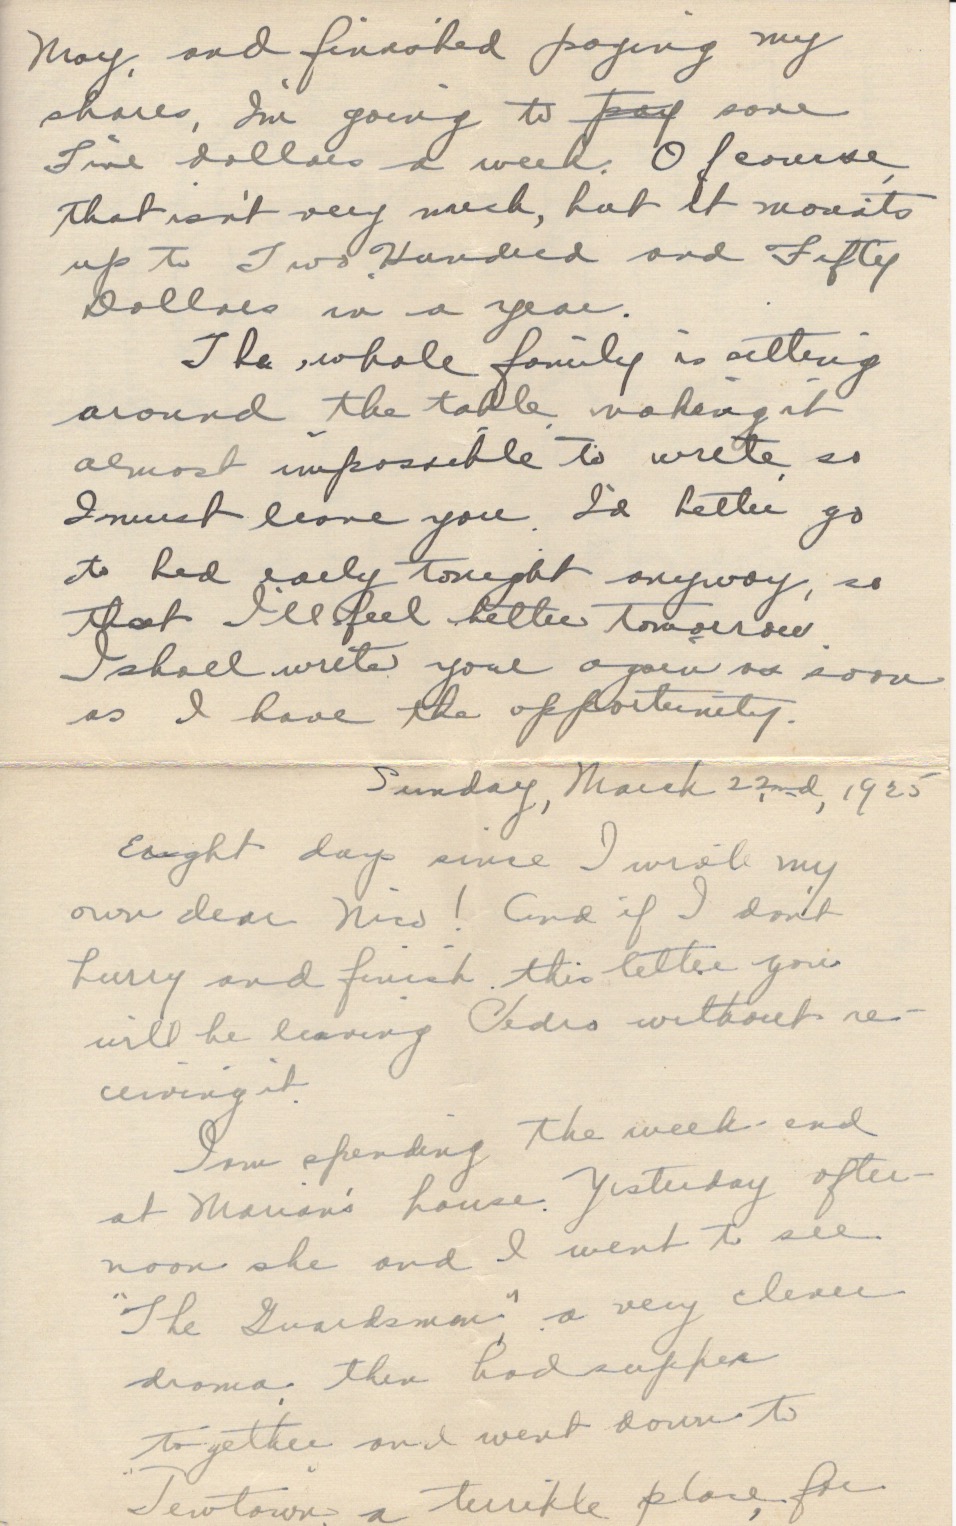 May, and finished paying my
shares, I'm going to pay save
Five dollars a week. Of course,
that isn't very much, but it mounts
up to Two Hundred and Fifty
Dollars in a year.
The whole family is sitting
around the table, making it
almost impossible to write, so
I must leave you. I'd better go
to bed early tonight anyway, so
that I'll feel better tomorrow.
I shall write you again as soon
as I have the opportunity.
Sunday, March 22nd, 1925
Eight days since I wrote my
own dear Nico! And if I don't
hurry and finish this letter you
will be leaving Pedro without re-
ceiving it.
I am spending the week-end
at Marian's house. Yesterday after-
noon she and I went to see
"The Guardsman", a very clever
drama, then had supper
together and went down to
"Jewtown" a terrible place, for